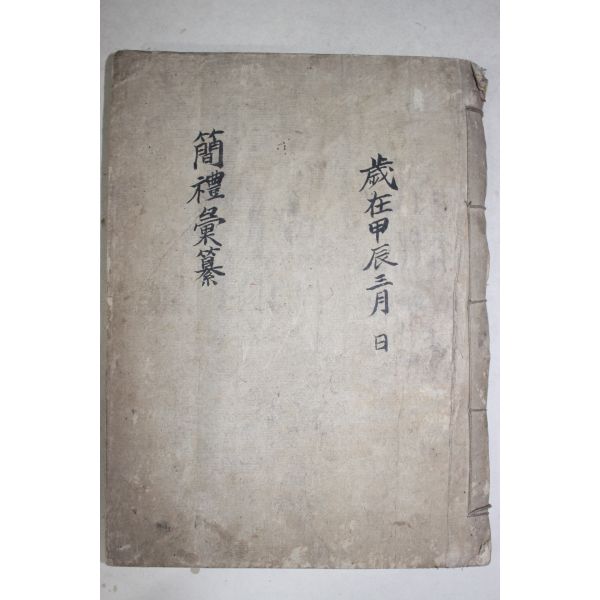 歲在甲辰三月 日
簡禮彙纂